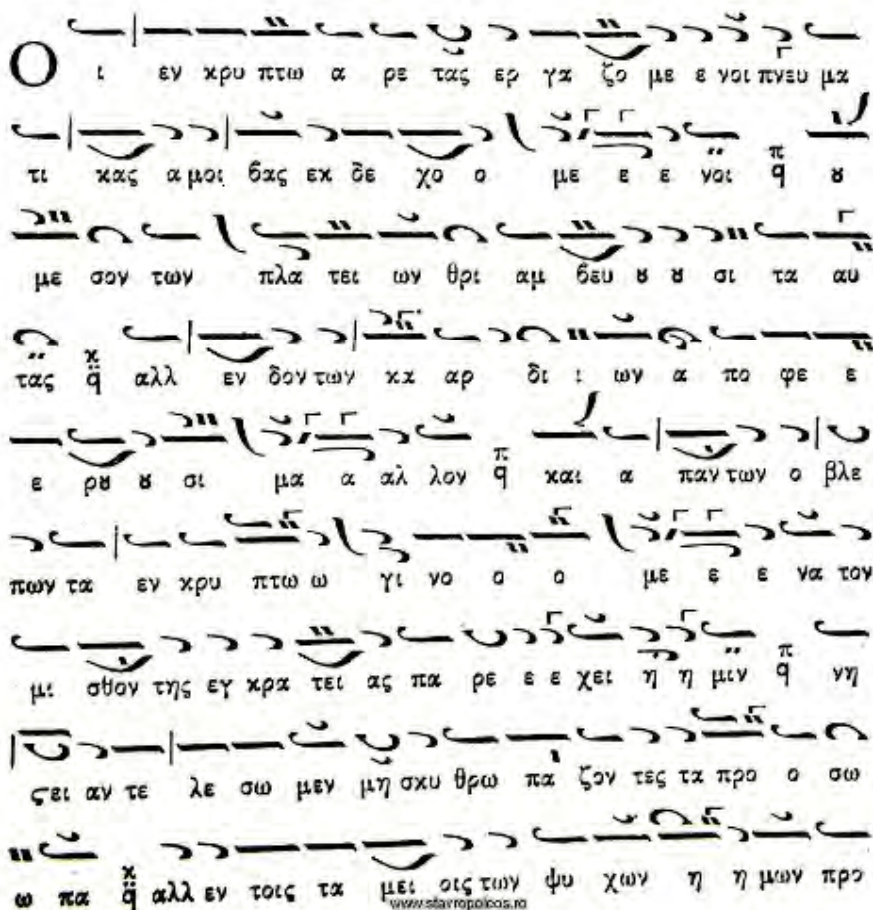 Ο ι εν κρυ πτω α ρε τας ερ γα ζο με ε νοι πνευ μα
τι κας α μοι βας εκ δε χο ο με ε ε νοι π q ȣ
με σον των πλα τει ων θρι αμ βευ ȣ ȣ σι τα αυ
τας κ q αλλ εν δον των κα αρ δι ι ων α πο φε ε
ε ρȣ ȣ σι μα α αλ λον π q και α παν των ο βλε
πων τα εν κρυ πτω ω γι νο ο ο με ε ε να τον
μι σθον της εγ κρα τει ας πα ρε ε ε χει η η μιν π q νη
ϛει αν τε λε σω μεν μη σκυ θρω πα ζον τες τα προ ο σω
ω πα κ q αλλ εν τοις τα μει οις των ψυ χων η η μων προ
www.stavropoleos.ro